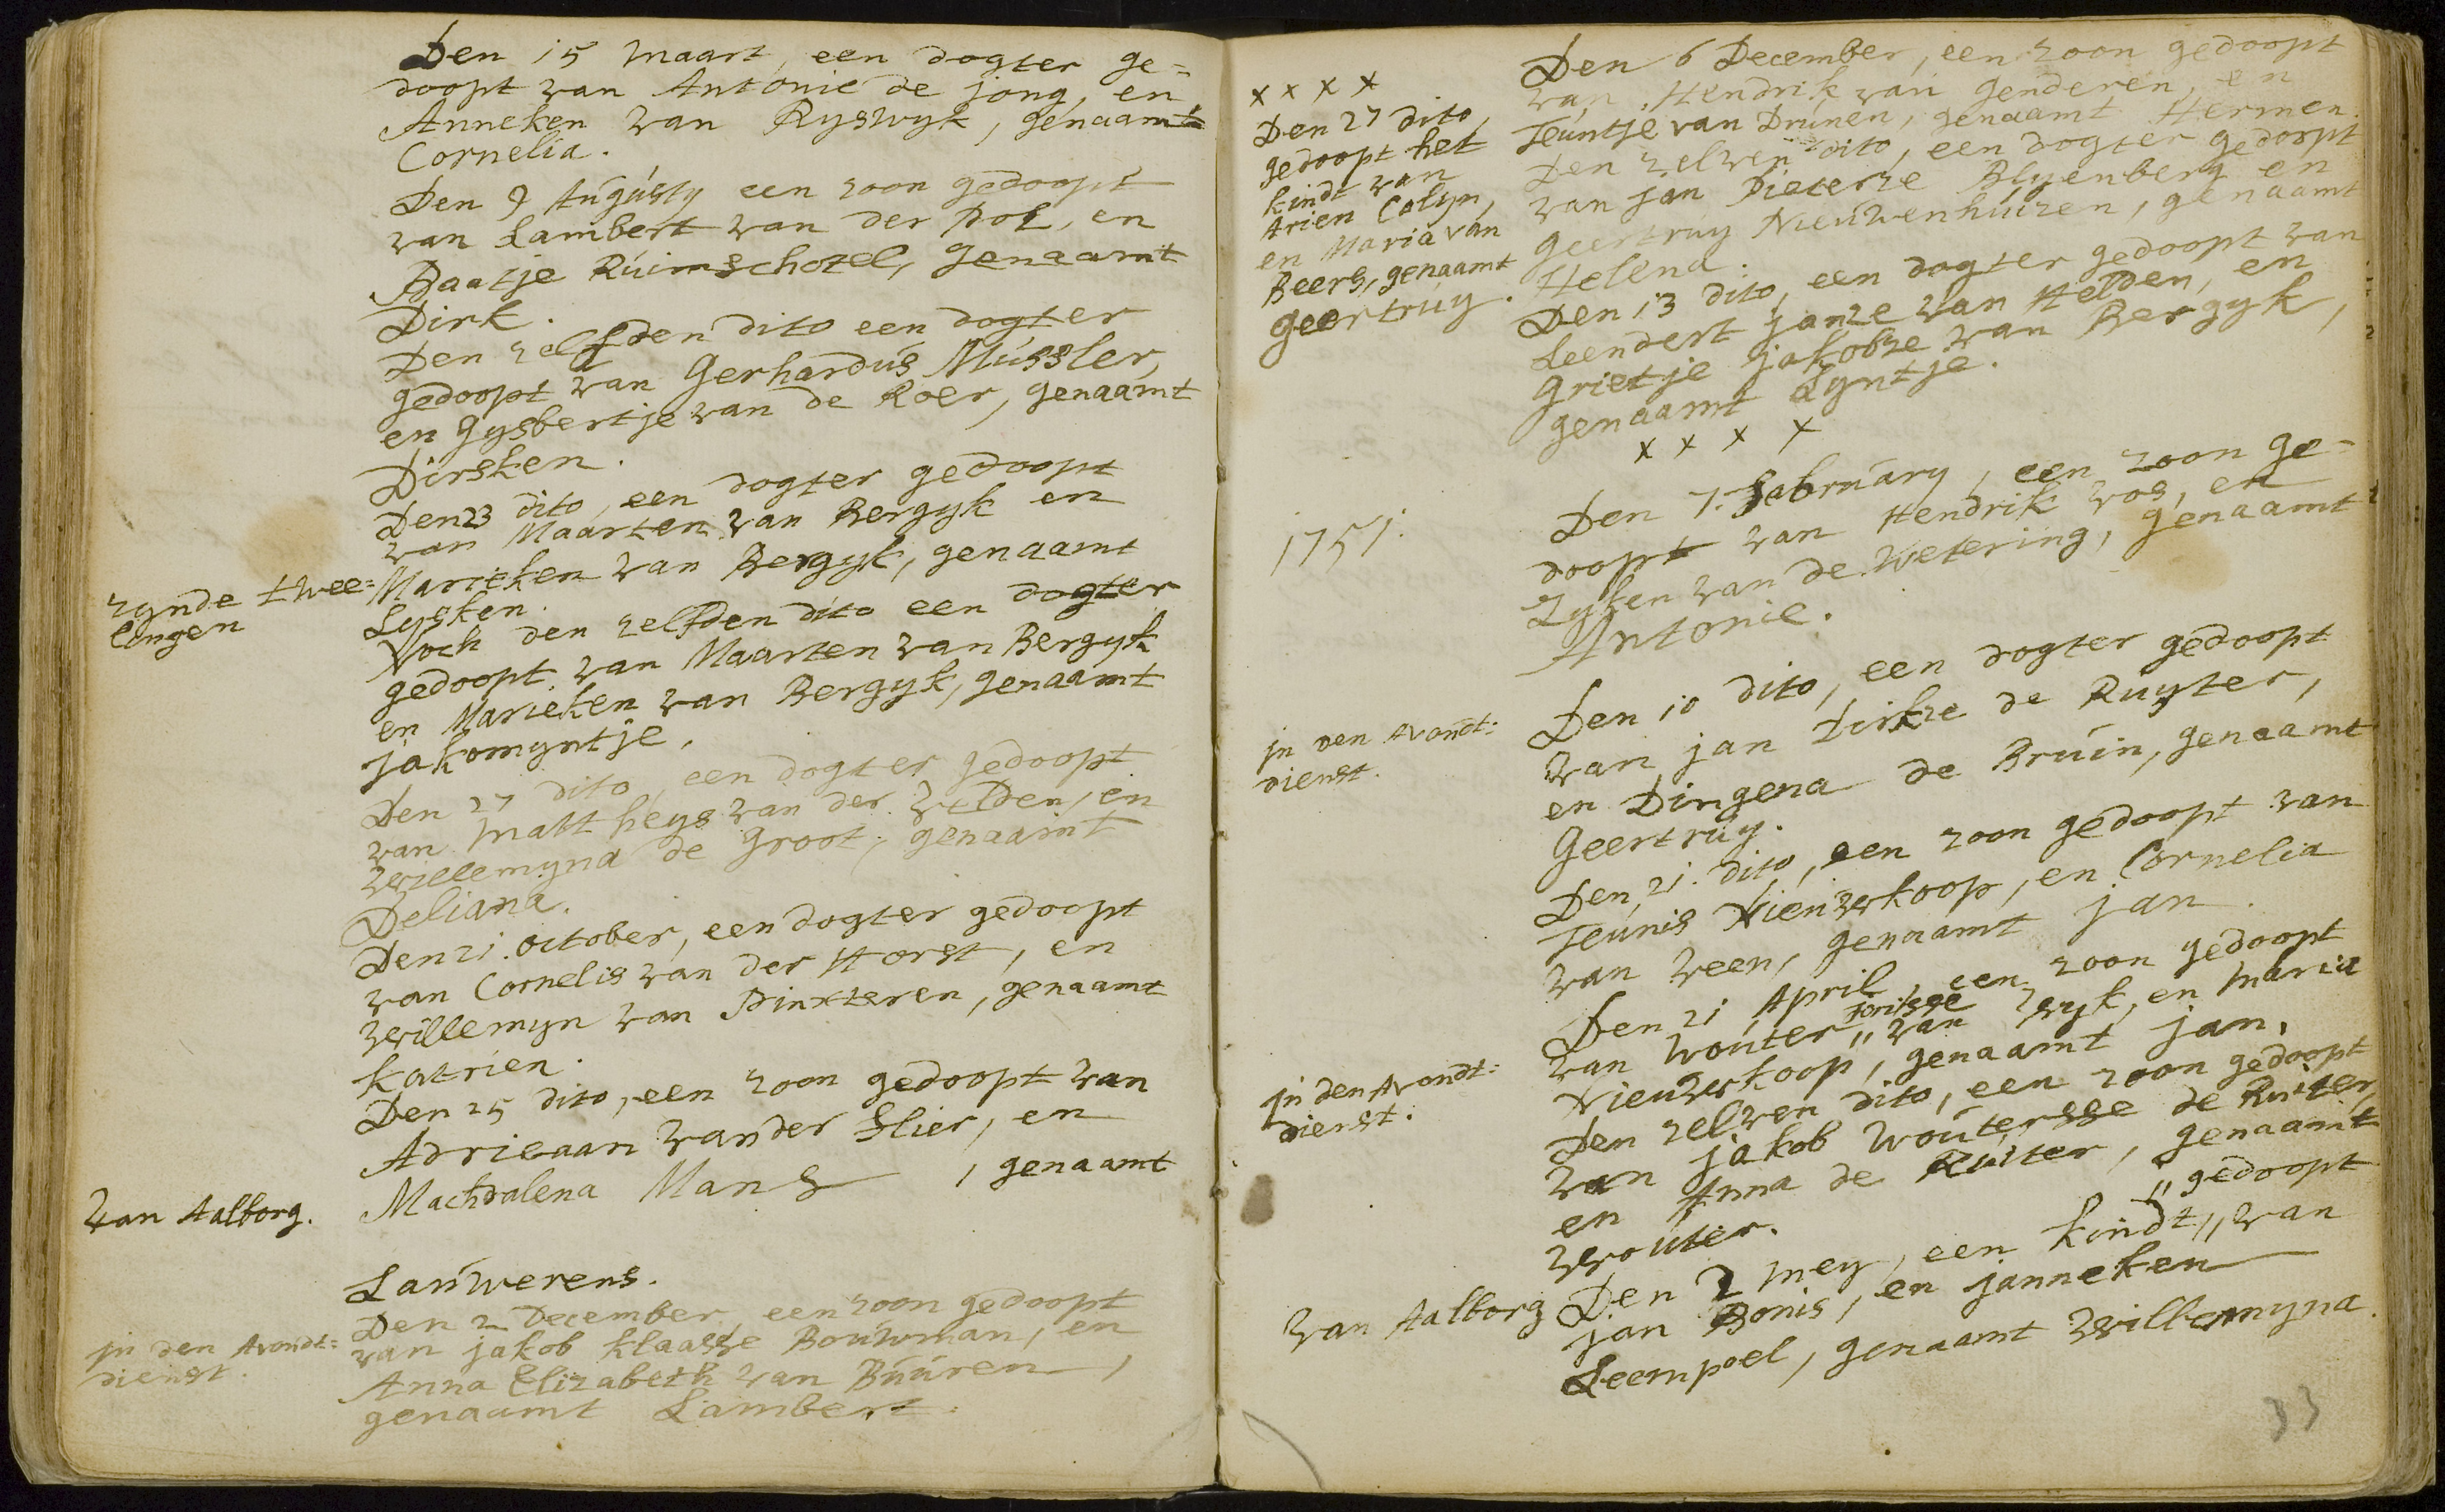 Den 15 maart, een dogter ge=
doopt van Antonie de jong, en
Anneken van Ryswyk, genaamt
Cornelia.
Den 9 Augusty een zoon gedoopt
van Lambert van der Pol, en
Baatje Ruimschotel, genaamt
Dirk.
Den zelfden dito een dogter
gedoopt van Gerhardus Mussler,
en Gysbertje van de Roer, genaamt
Dirsken.
Den 23 dito, een dogter gedoopt
van Maarten van Bergyk en
zynde twee=
lingen
Marieken van Bergyk, genaamt
Lysken.
Noch den zelfden dito een dogter
gedoopt van Maarten van Bergyk
en Marieken van Bergyk, genaamt
jakomyntje.
Den 27 dito, een dogter gedoopt
van Mattheys van der Velden, en
Willemyna de Groot, genaamt
Deliana.
Den 21. october, een dogter gedoopt
van Cornelis van der Horst, en
Willemyn van Pinxteren, genaamt
Katrien.
Den 25 dito, een zoon gedoopt van
Adriaan van der Slier, en
Machdalena Mans, genaamt
van Aalborg.
Lauwerens.
Den 2 December, een zoon gedoopt
in den Avondt=
dienst.
van jakob Klaasse Bouwman, en
Anna Elizabeth van Buuren,
genaamt Lambert.
x x x x
Den 27 dito,
gedoopt het
kindt van
Arien Colyn,
en Maria van
Beers, genaamt
Geertruy.
Den 6 December, een zoon gedoopt
van Hendrik van Genderen, en
Teuntje van Drunen, genaamt Hermen.
Den zelven dito, een dogter gedoopt
van jan Pieterze Blyenberg en
Geertruy Nieuwenhuizen, genaamt
Helena.
Den 13 dito, een dogter gedoopt van
Leendert janze van Helden, en
Grietje jakobze van Bergyk,
genaamt Lyntje.
x x x x
1751.
Den 7. February, een zoon ge=
doopt van Hendrik Vos, en
Zyken van de Wetering, genaamt
Antonie.
in den Avondt=
dienst.
Den 10 dito, een dogter gedoopt
van jan Dirkze de Ruyter,
en Dingena de Bruin, genaamt
Geertruy.
Den 21. dito, een zoon gedoopt van
Teunis Nieuwkoop, en Cornelia
van Veen, genaamt jan.
Den 21 April, een zoon gedoopt
van Wouter " jorisse van Wyk, en Maria
Nieuwkoop, genaamt jan.
in den Avondt=
dienst.
Den zelven dito, een zoon gedoopt
van jakob Woutersse de Ruiter,
en Anna de Ruiter, genaamt
Wouter.
van Aalborg
Den 2 mey, een kindt " gedoopt " van
jan Bonis, en janneken
Leempoel, genaamt Willemyna.
33